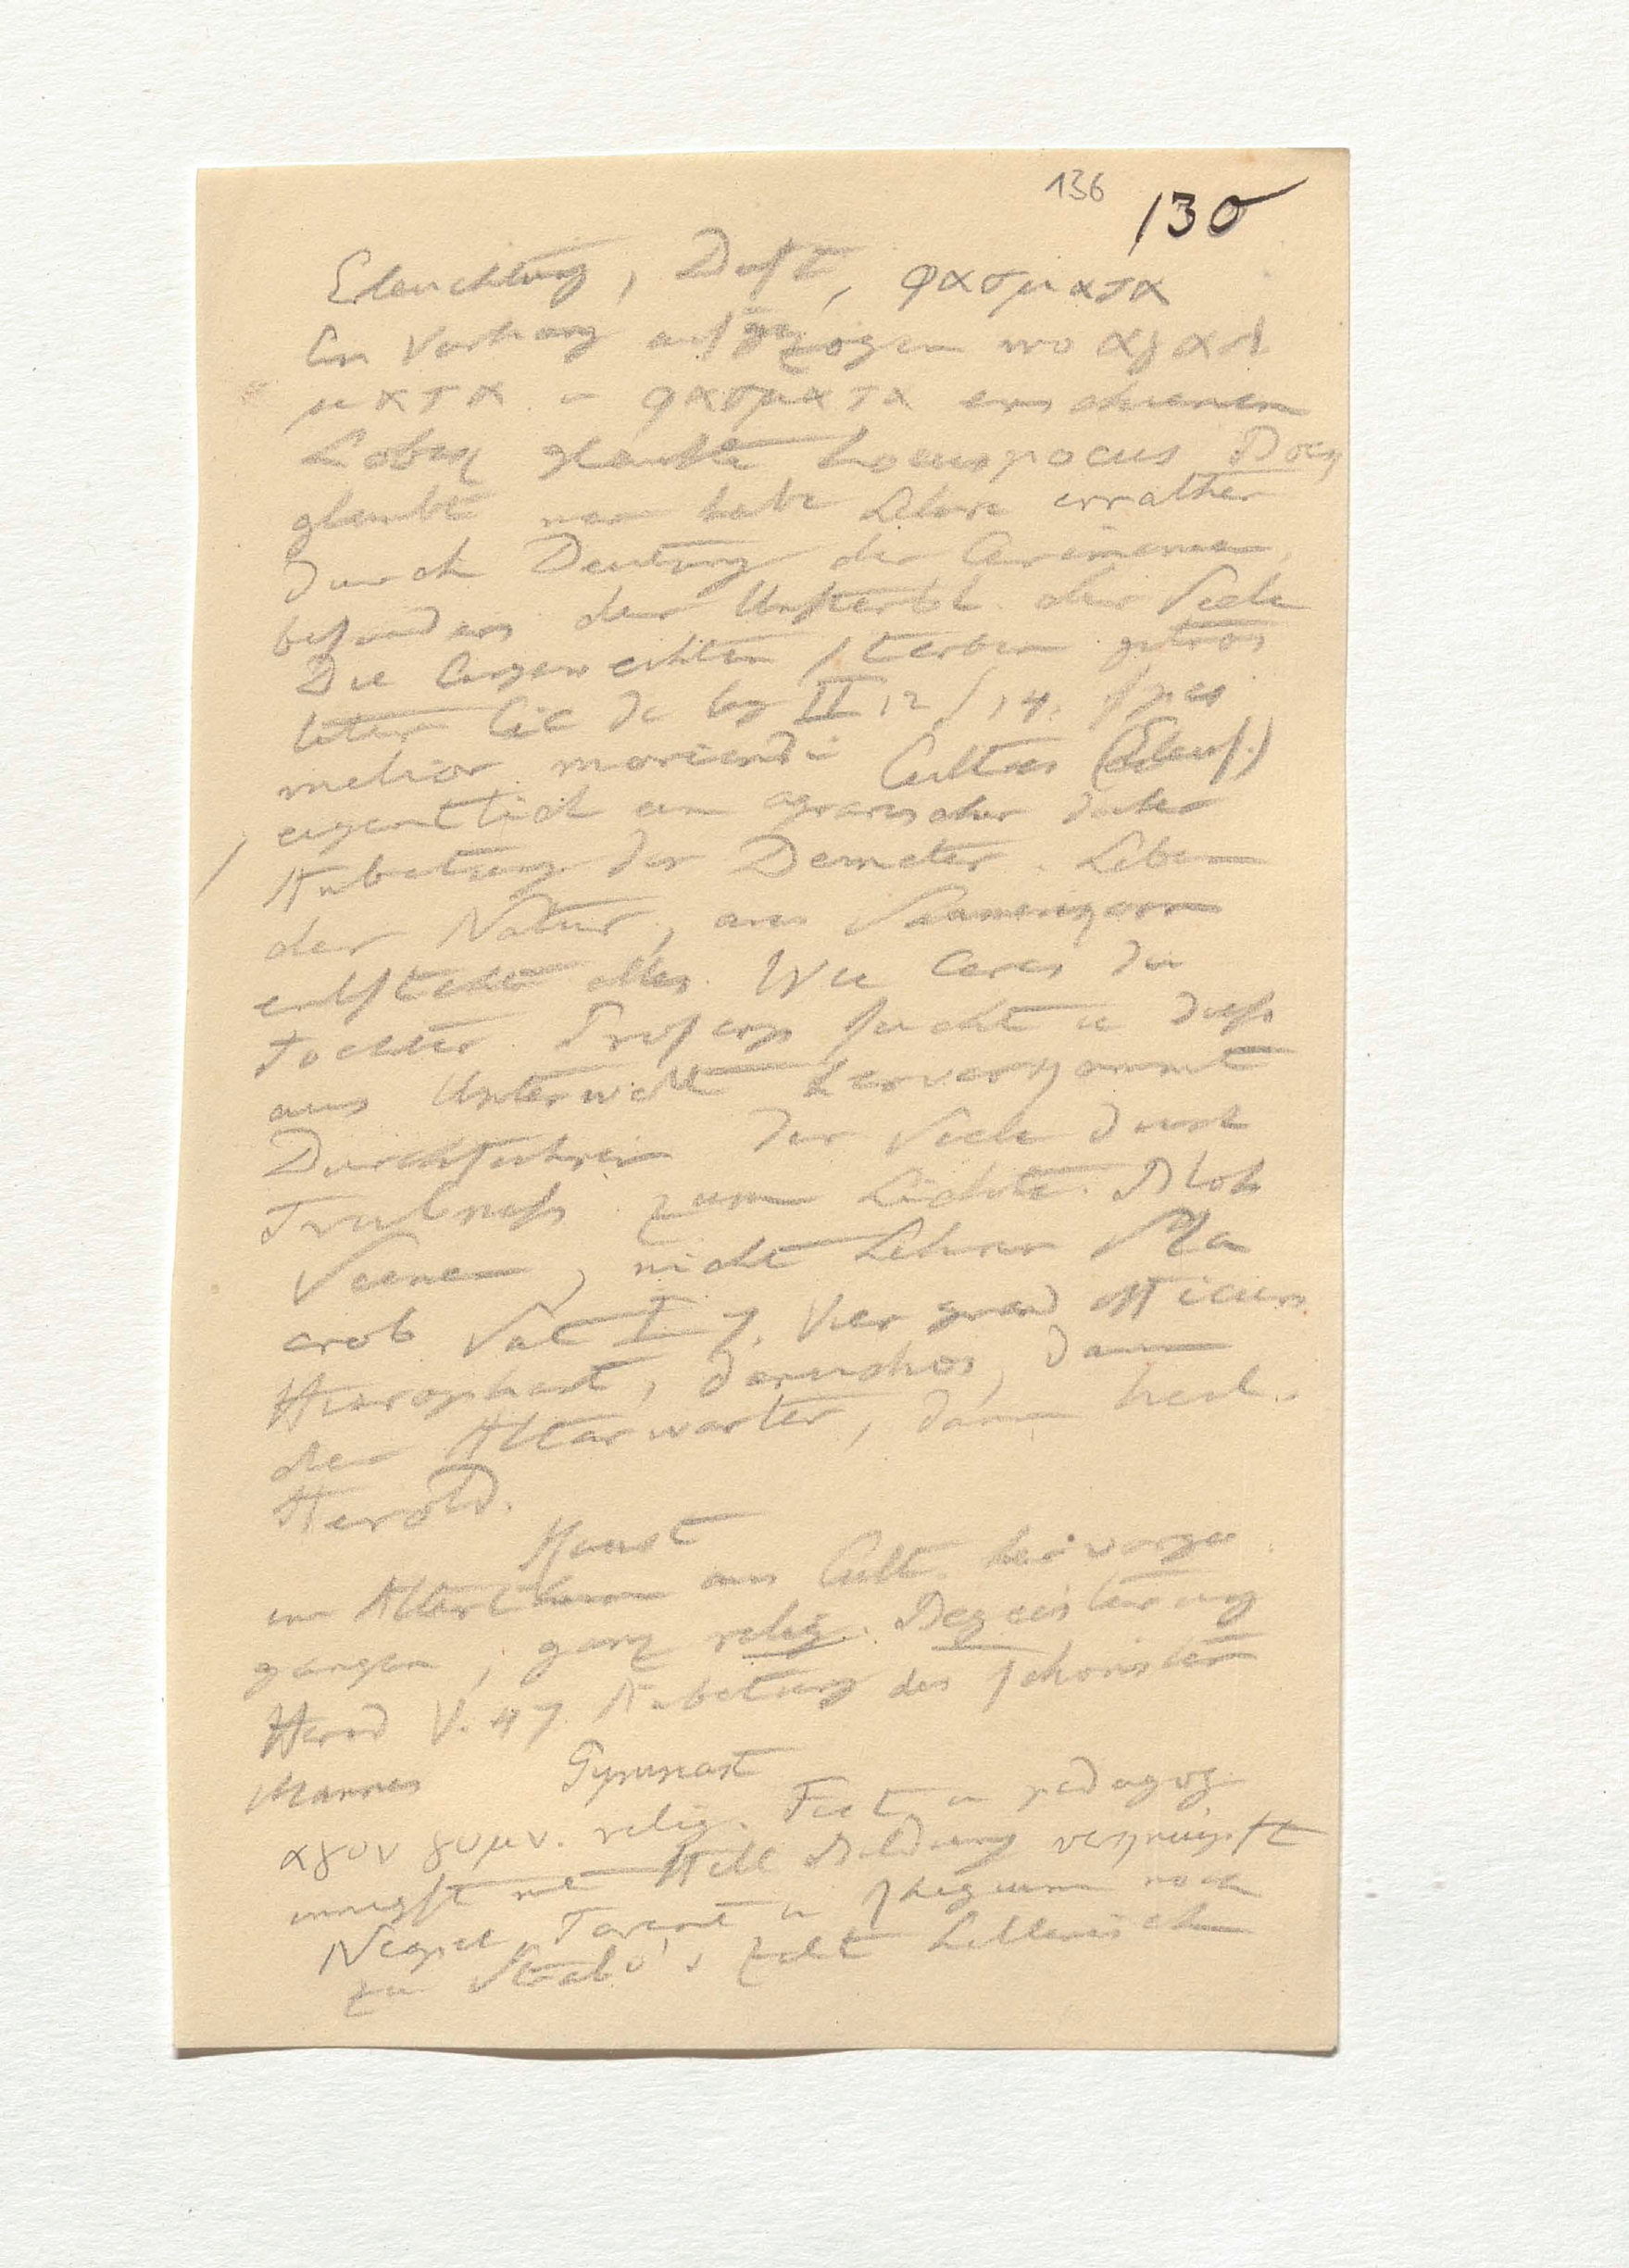 136 130
Erleuchtung, Duft, φασματα
Ein Vorhang aufgezogen wo αγαλ
ματα - φασματα erschienen
Lobek glaubte hocuspocus Doch
glaubt man habe Lehre errathen
durch Deutung der Cerimonien
besonders der Unsterbl. der Seele
Die Eingeweihten sterben getros
teter Cic de leg II 12/14. spes
melior moriendi Cultus (Eleus.)
eigentlich ein agrarischer daher
Anbetung der Demeter. Leben
der Natur, aus Saamenkorn
entsteht alles. Wie Ceres die
Tochter Proserp sucht u diese
aus Unterwelt hervorkommt
Durchführen der Seele durch
zum Lichte. Blos
Scenen, nicht Lehren Ma
crob Sat I 7. Vier
Hierophant, daruchos, dann
der Altarwarter, dann heil.
Herold.
Kunst
im Alterthum aus Cult hervorge
gangen, ganz relig. Begeisterung
Herod V. 47 Anbetung des schönsten
Mannes Gymnast
αγον γυμν. relig. Fest u pedagog
innigst mit Hell Bildung verknüpft
Neapel, Tarent u Rhegium noch
zu Strabo's Zeit hellenisch